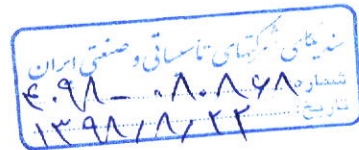 سندیکای شرکتهای تاسیساتی و صنعتی ایران
شماره: ۴۰۹۸ – ۰۸۰۸۶۸
تاریخ: ۱۳۹۸/۸/۲۲